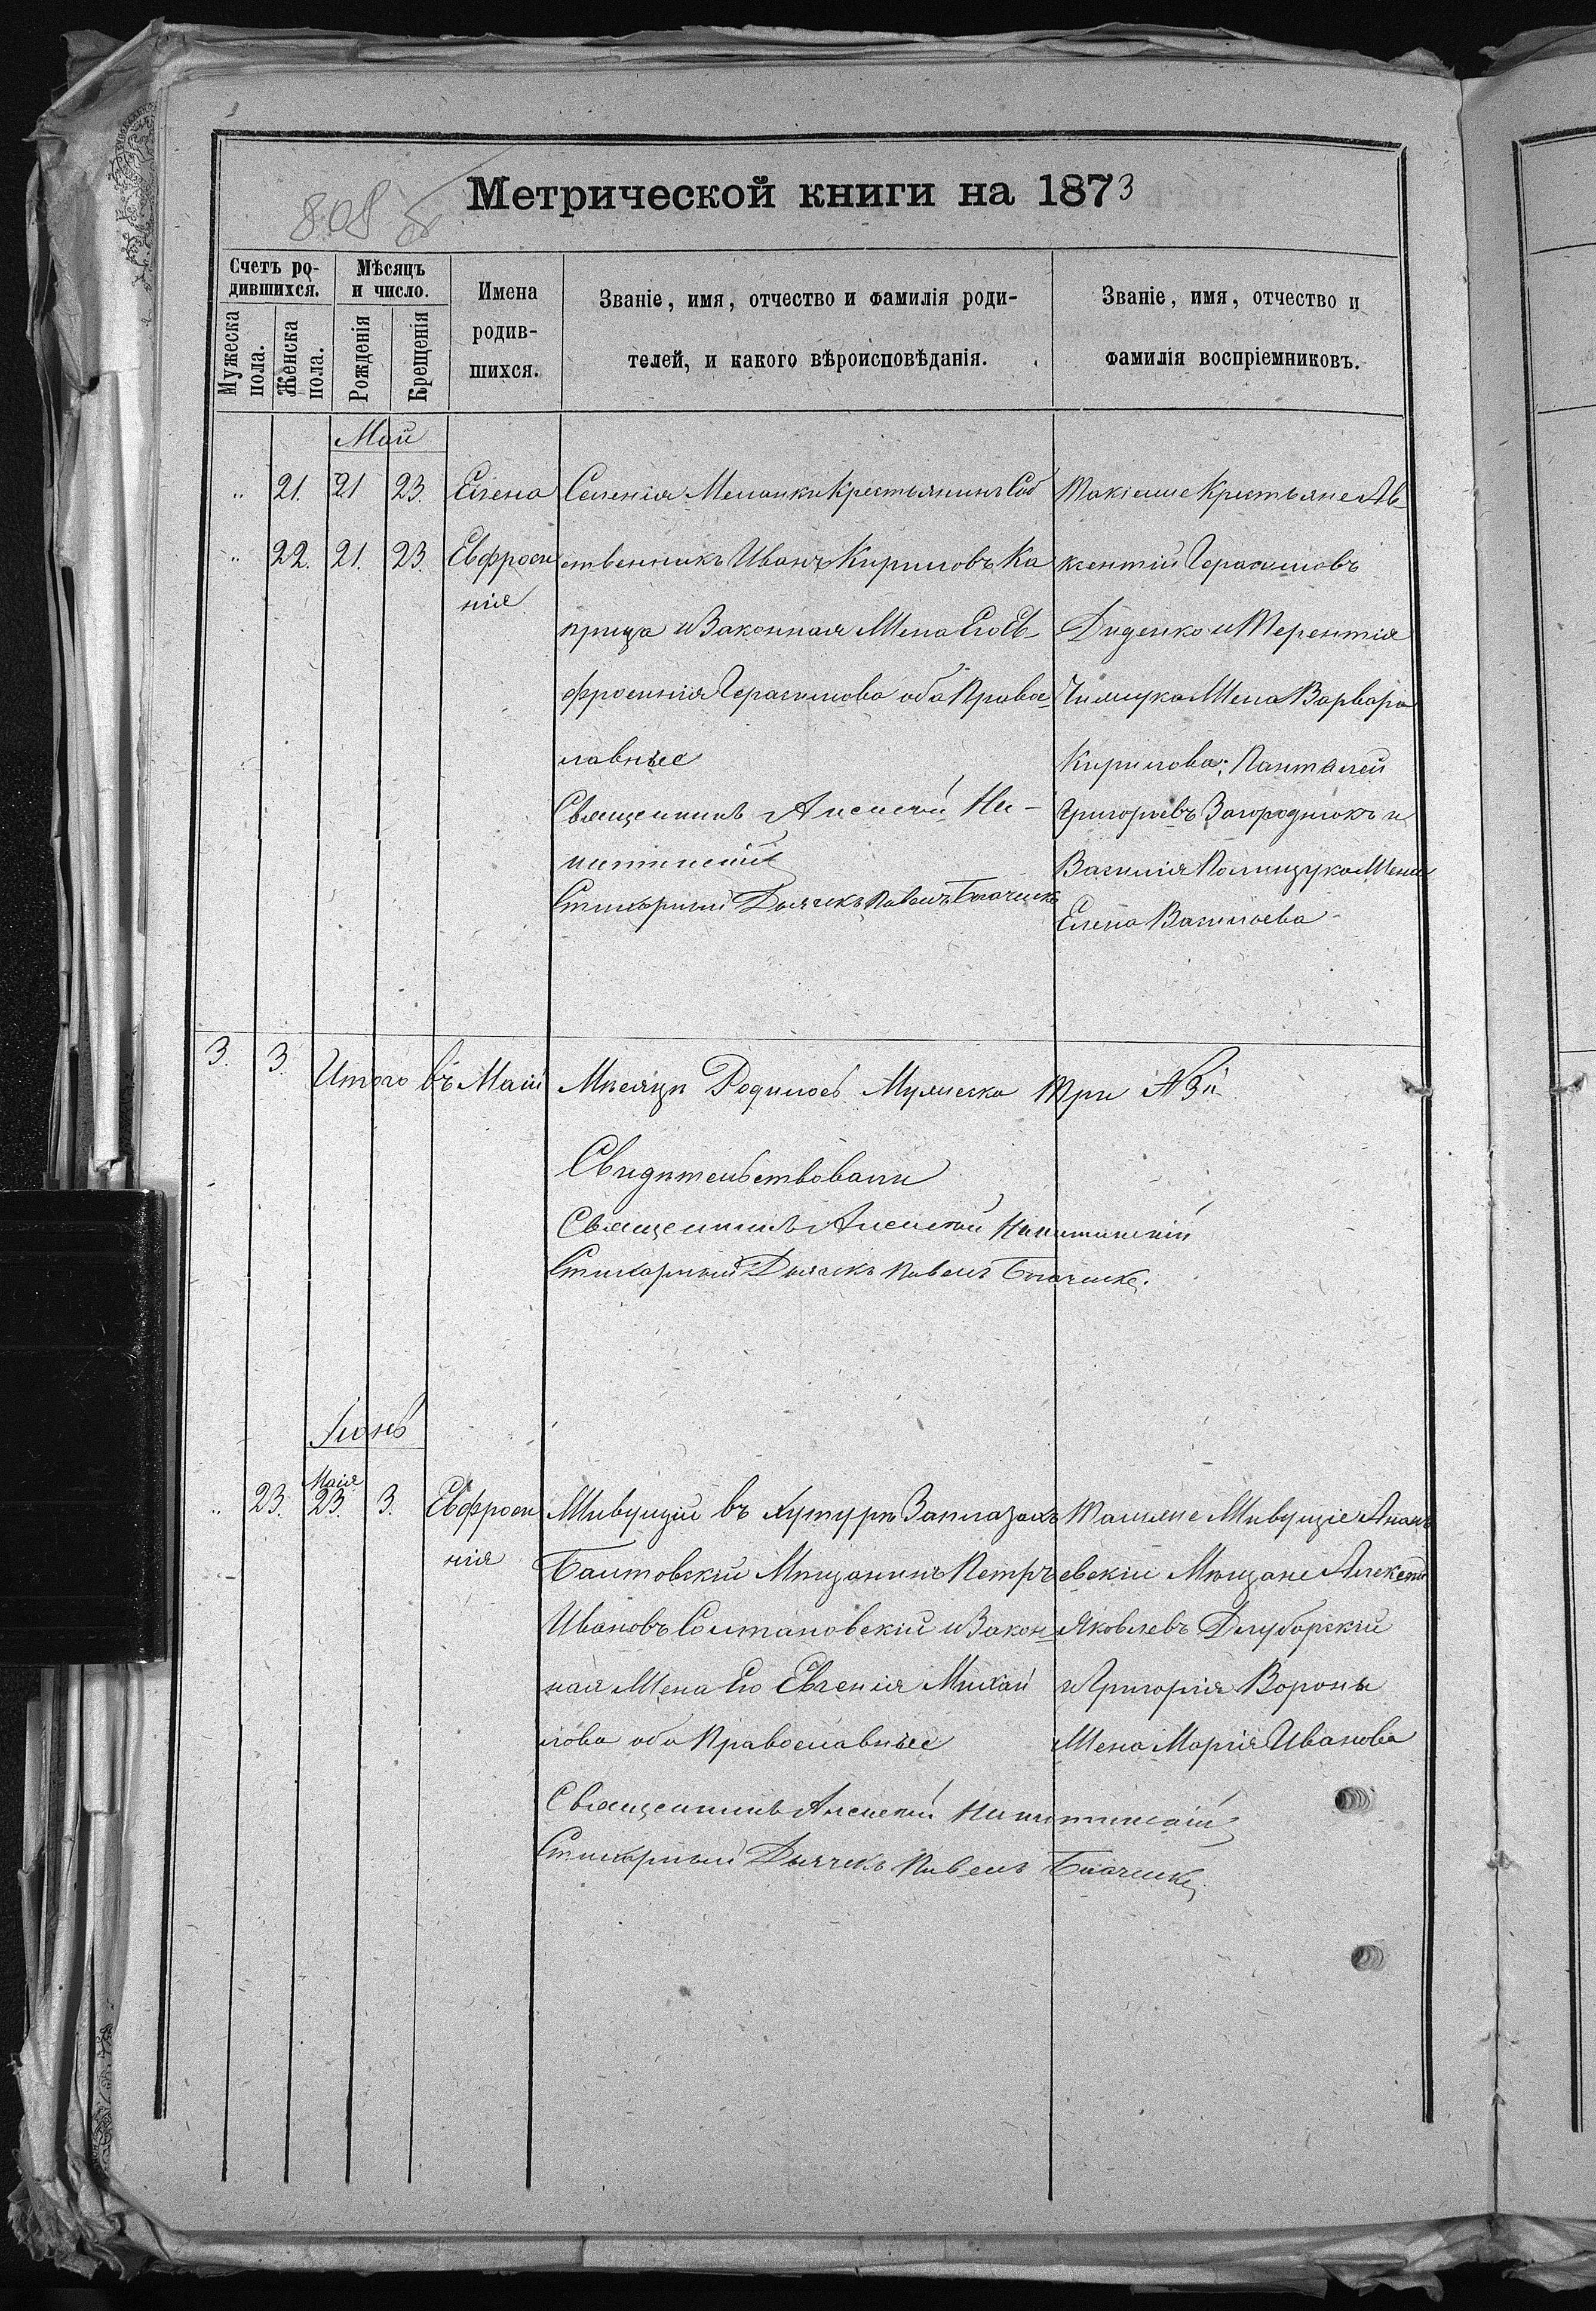 Метрической книги на 1873
808 об
Счетъ ро-
дившихся.
Мѣсяцъ
и число.
Мужеска
пола.
Женска
пола.
Рожденія
Крещенія
Имена
родив-
шихся.
Званіе, имя, отчество и фамилія роди-
телей, и какого вѣроисповѣданія.
Званіе, имя, отчество и
фамилія воспріемниковъ.
Май
" 21. 21 23. Елена
" 22. 21. 23. Евфроси
нія
Селенія Меланки Крестьянинъ Соб
ственникъ Иванъ Кириловъ Ка
прица и Законная Жена Его Ев-
фросинія Герасимова оба Правос-
лавные
Священникъ Алексѣй Ни-
китинскій
Стихарный Дьячекъ Павелъ
Такіеже Крестьяне Ав-
ксентій Герасимовъ
Диденко и Терентія
Жена Варвара
Кирилова; Панталей
Григорьевъ Загороднюкъ и
Василія Полищука Жена
Елена Васильева
3. 3. Итого въ Маѣ Мѣсяцѣ Родилось Мужеска Три
Свидѣтельствовали
Священникъ Алексѣй Никитинскій
Стихарный Дьячекъ Павелъ
Іюнь
Маія
" 23. 23. 3. Евфроси
нія
Живущій въ Хуторѣ Заплазахъ
Балтовскій Мѣщанинъ Петръ
Ивановъ Солтановскій и Закон-
ная Жена Его Евгенія Михай
лова оба Православные
Священникъ Алексѣй Никитинскій
Стихарный Дьячекъ Павелъ
Тамже Живущіе Анань
евскій Мѣщане Алексѣй
Яковлевъ
и Григорія Вороны
Жена Марія Иванова